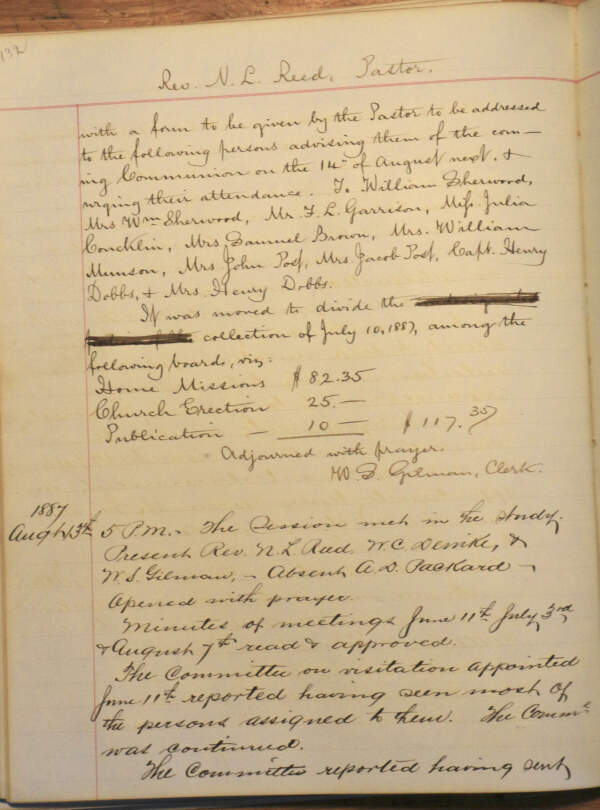 132
Rev. N. L. Reed, Pastor.
with a form to be given by the Pastor to be addressed
to the following persons advising them of the com-
ing Communion on the 14th of August next. &
urging their attendance. To William Sherwood,
Mrs Wm Sherwood, Mr. F. L. Garrison, Miss Julia
Concklin, Mrs Samuel Brown, Mrs. William
Munson, Mrs John Post, Mrs Jacob Post, Capt. Henry
Dobbs, & Mrs. Henry Dobbs.
It was moved to divide the
collection of July 10, 1887, among the
following boards, viz:
Home Missions $82.35
Church Erection 25.—
Publication — 10 — $117.35
Adjourned with prayer.
W S. Gilman, Clerk.
1887
Augt 13th 5 P.M. - The Session met in the Study.
Present Rev. N. L Reed, W. C. & 
W. S. Gilman, - Absent A. D. Packard -
Opened with prayer.
Minutes of meetings June 11th July 3rd
& August 7th read & approved.
The Committee on visitation appointed
June 11th reported having seen most of
the persons assigned to them. The Commte
was continued.
The Committee reported having sent